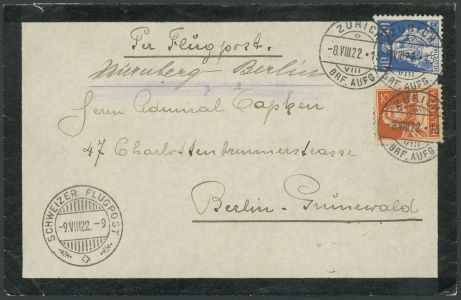 Per Flugpost.
Nürnberg - Berlin
Herrn Admiral Capken
47 Charlottenbrunnerstrasse
Berlin-Grunewald
ZÜRICH
-8.VIII22.-1
VIII
BRF. AUFG.
25
ZÜRICH
VIII
BRF. AUFG.
SCHWEIZER FLUGPOST
-9.VIII22.-9